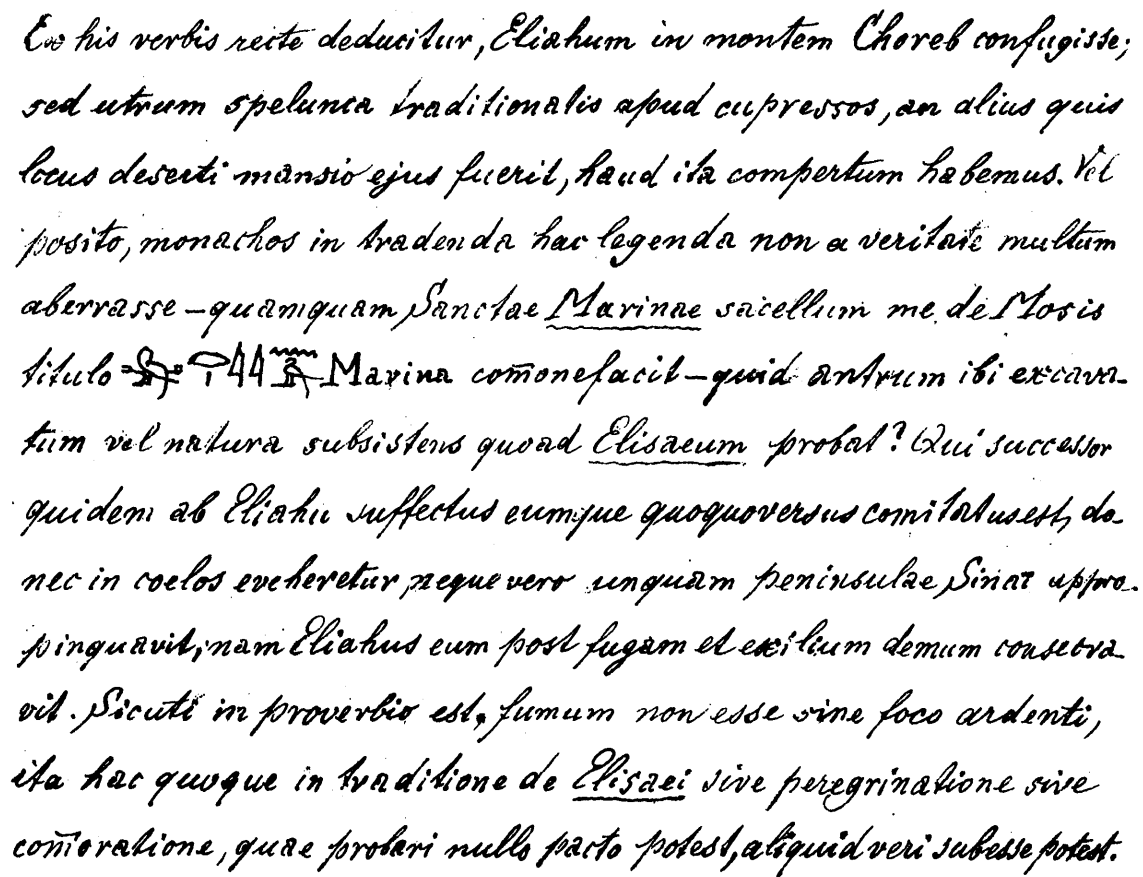 Ex his verbis recte deducitur, Eliahum in montem Choreb confugisse;
sed utrum spelunca traditionalis apud cupressos, an alius quis
locus deserti mansio ejus fuerit, haud ita compertum habemus. Vel
posito, monachos in tradenda hac legenda non a veritate multum
aberrasse – quamquam Sanctae Marinae sacellum me de Mosis
titulo Marina com̄onefacit – quid antrum ibi excava-
tum vel natura subsistens quoad Elisaeum probat? Qui successor
quidem ab Eliahu suffectus eumque quoquoversus comitatus est, do-
nec in coelos eveheretur, neque vero unquam peninsulae Sinai appro-
pinquavit; nam Eliahus eum post fugam et exilium demum consecra-
vit. Sicuti in proverbio est, fumum non esse sine foco ardenti,
ita hac quoque in traditione de Elisaei sive peregrinatione sive
com̄oratione, quae probari nullo pacto potest, aliquid veri subesse potest.